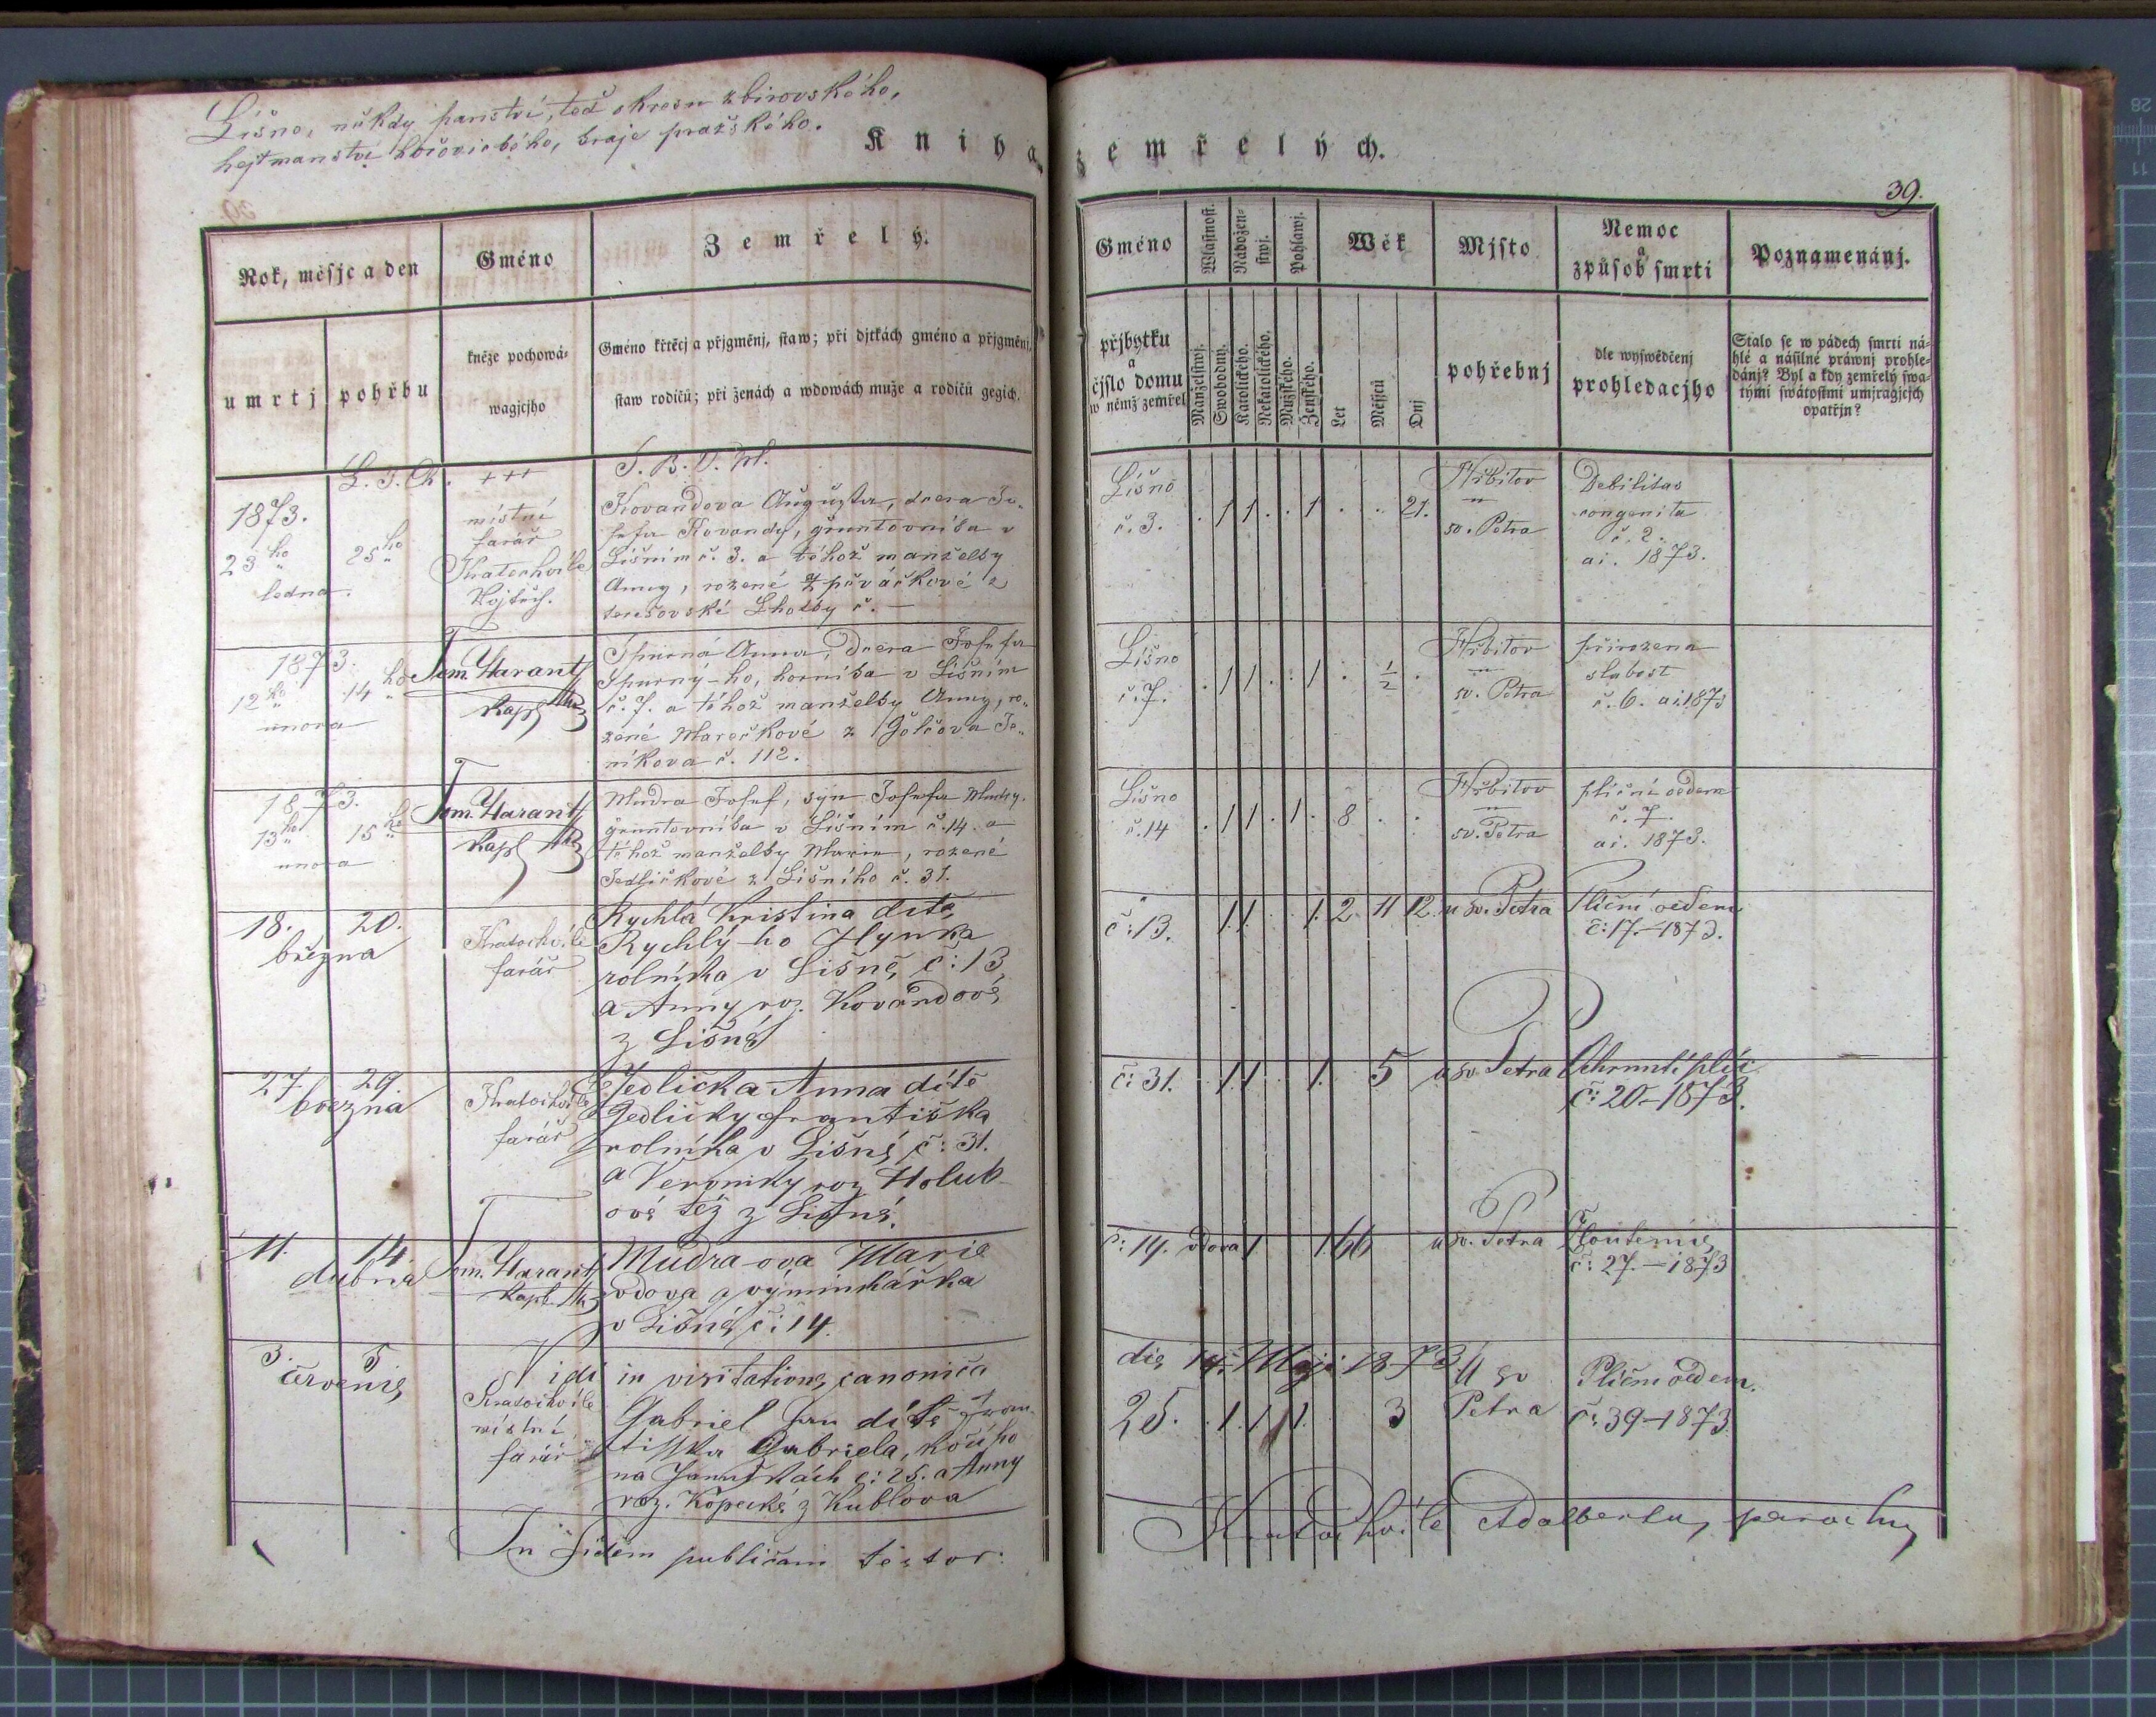 Lišno, někdy panství, teď okresu zbirovského,
hejtmanství hořovického, kraje pražského.
Kniha zemřelých.
39.
Rok, měsjc a den
Gméno
Zemřelý.
umrtj
pohřbu
kněze pochowá-
wagjcjho
Gméno křtěcj a přjgměnj, staw; při djtkách gméno a přjgměnj,
staw rodičů; při ženách a wdowách muže a rodičů gegich.
Gméno
Wlastnost.
Náboženstwj.
Pohlawj.
Wěk
Mjsto
Nemoc
a
způsob smrti
Poznamenánj.
přjbytku
a
čjslo domu
w němž zemřel
Manželstwj.
Swobodný.
Katolického.
Nekatolického.
Mužského.
Ženského.
Let
Měsjců
Dnj
pohřebnj
dle wyswědčenj
prohledacjho
Stalo se w pádech smrti ná-
hlé a násilné práwnj prohle-
dánj? Byl a kdy zemřelý swa-
tými swátostmi umjragjcjch
opatřjn?
+++
1873.
23ho 25ho
ledna.
místní
farář
Kratochvíle
Vojtěch.
Kovandova Augusta, dcera Jo-
sefa Kovandy, gruntovníka v
Lišním č. 3. a téhož manželky
Anny, rozené Zpěváčkové z
terešovské Lhotky č. —
Lišno
č. 3. 1 1 1 21.
Hřbitov
sv. Petra
Debilitas
congenita
č. 2.
ai. 1873.
1873.
12ho 14ho
února
Harant
kapl
Spurná Anna, dcera Josefa
Spurný-ho, horníka v Lišním
č. 7. a téhož manželky Anny, ro-
zené Marečkové z Golčova Je-
níkova č. 112.
Lišno
č. 7. 1 1 1 1/2
Hřbitov
sv. Petra
přirozena
slabost
č. 6. ai. 1873
1873.
13ho 15ho
února
Harant
kapl
Mudra Josef, syn Josefa Mudry,
gruntovníka v Lišním č. 14. a
téhož manželky Marie, rozené
Jedličkové z Lišního č. 31.
Lišno
č. 14 1 1 1 8
Hřbitov
sv. Petra
plicní oedem
č. 7.
ai. 1873.
18. 20.
března
Kratochvíle
farář
Rychlá Kristina dítě
Rychlý-ho Hynka
rolníka v Lišně, č: 13
a Anny roz. Kovandové
z Lišné
č: 13. 1 1 1. 2. 11 12. u sv. Petra Plicní oedem
č: 17.—1873.
27 29.
března
Kratochvíle
farář
Jedlička Anna dítě
Jedličky Františka
rolníka v Lišné, č: 31.
a Veroniky roz Holub-
ové též z Lišné.
č: 31. 1 1 1. 5 u sv. Petra Ochrnutí plic
č: 20—1873.
11. 14.
dubna
Harant
kapl
Mudra-ova Marie
vdova a výminkářka
v Lišné, č: 14.
č: 14. vdova 1 1. 66 u sv. Petra Žloutenice
č: 27.—1873
Vidi in visitatione canonica die 14. Maji 1873.
3. 5
července
Kratochvíle
místní
farář
Gabriel Jan dítě Fran-
tiška Gabriela, kočího
na Januškách č: 25. a Anny
roz. Kopecké z Kublova
25. 1. 1 1. 3
U sv
Petra
Plicní oedem.
č: 39—1873.
In fidem publicam testor: Kratochvíle Adalbertus, parochus